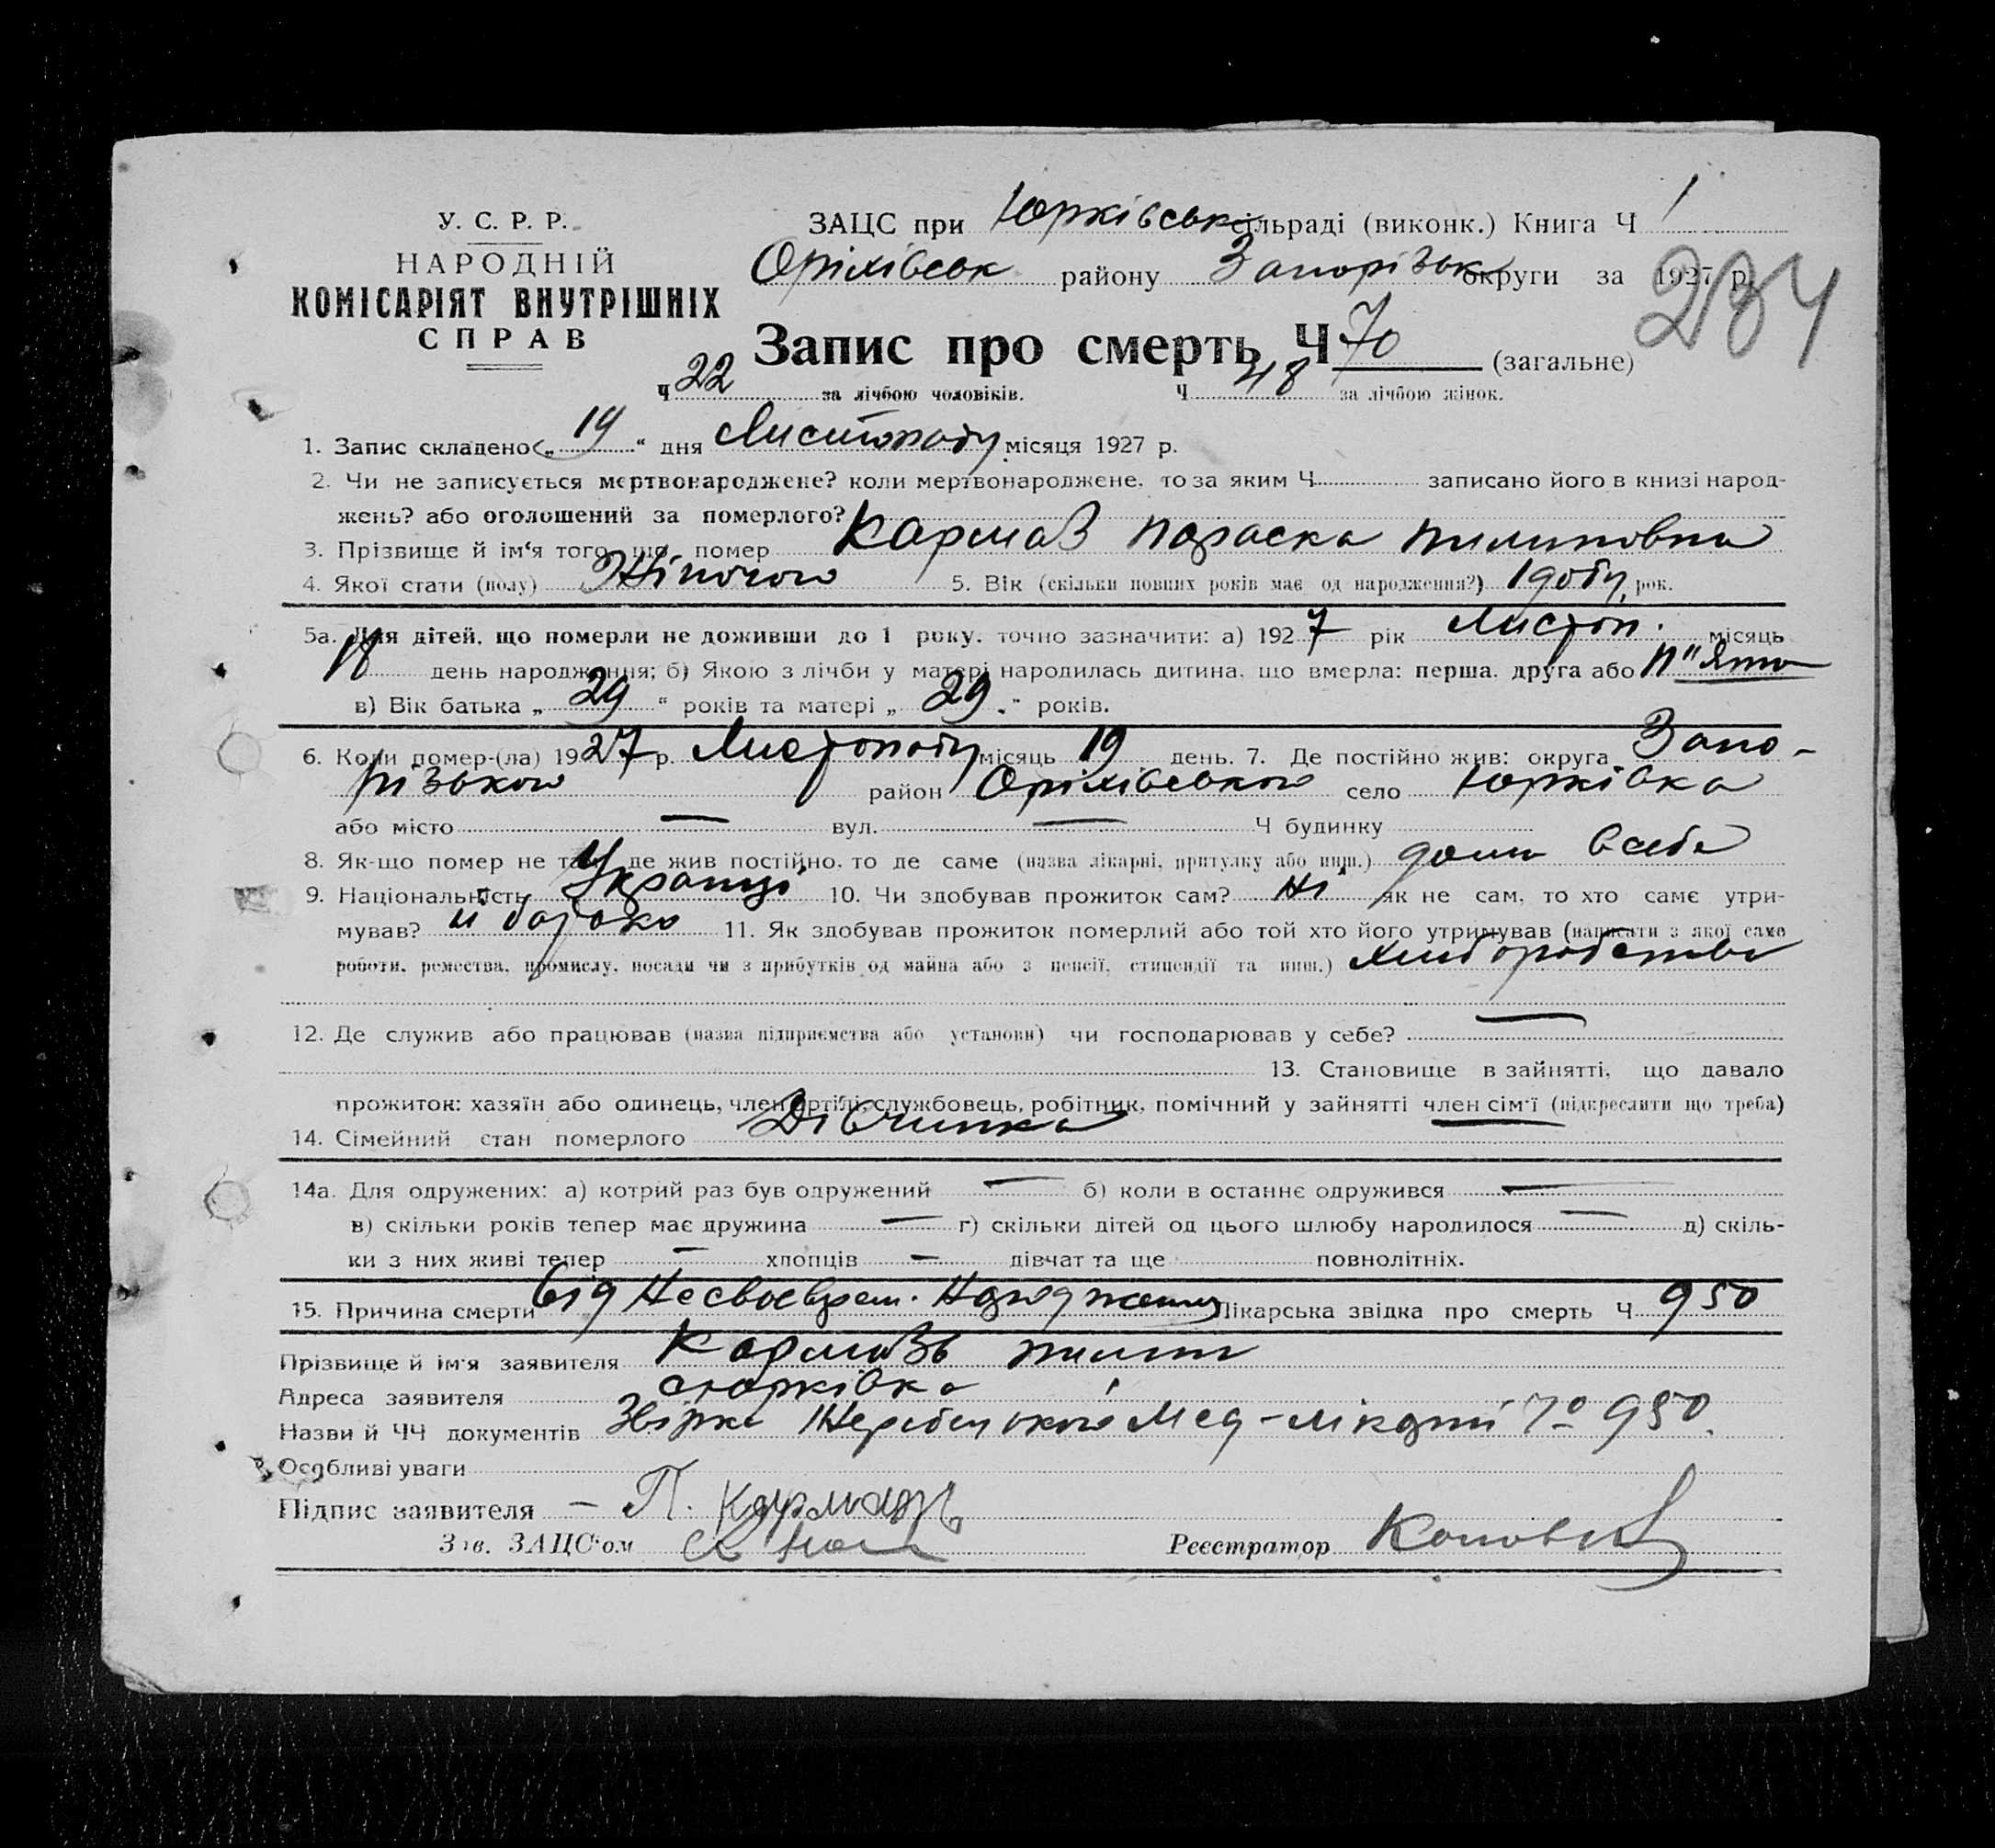 У. С. Р. Р.
НАРОДНІЙ
КОМІСАРІЯТ ВНУТРІШНІХ
СПРАВ
ЗАЦС при Юрківськ сільраді (виконк.) Книга Ч 1
Оріхівськ району Запорізьк округи за 1927 р.
234
Запис про смерть Ч 70 (загальне)
Ч 22 за лічбою чоловіків. Ч 48 за лічбою жінок.
1. Запис складено „ 19 “ дня Листопаду місяця 1927 р.
2. Чи не записується мертвонароджене? коли мертвонароджене, то за яким Ч записано його в книзі народ-
жень? або оголошений за померлого?
3. Прізвище й ім‘я того, що помер Кармаз Параска Пилиповна
4. Якої стати (полу) Жіночою 5. Вік (скільки повних років має од народження?) 1 добу рок.
5а. Для дітей, що померли не доживши до 1 року, точно зазначити: а) 1927 рік Листоп. місяць
18 день народження; б) Якою з лічби у матері народилась дитина, що вмерла: перша, друга або п"ята
в) Вік батька „ 29 “ років та матері „ 29 “ років.
6. Коли помер-(ла) 1927 р. Листопаду місяць 19 день. 7. Де постійно жив: округа Запо-
різькою район Оріхівською село Юрківка
або місто — вул. — Ч будинку
8. Як-що помер не там, де жив постійно, то де саме (назва лікарні, притулку або инш.) дома в себе
9. Національність Українці 10. Чи здобував прожиток сам? Ні як не сам, то хто саме утри-
мував? її батько 11. Як здобував прожиток померлий або той хто його утримував (написати з якої саме
роботи, ремества, промислу, посади чи з прибутків од майна або з пенсії, стипендії та инш.) хліборобством
12. Де служив або працював (назва підприємства або установи) чи господарював у себе? —
13. Становище в зайнятті, що давало
прожиток: хазяїн або одинець, член артілі, службовець, робітник, помічний у зайнятті член сім‘ї (підкреслити що треба)
14. Сімейний стан померлого Дівчинка
14а. Для одружених: а) котрий раз був одружений — б) коли в останнє одружився —
в) скільки років тепер має дружина — г) скільки дітей од цього шлюбу народилося — д) скіль-
ки з них живі тепер — хлопців — дівчат та ще повнолітніх.
15. Причина смерти від Несвоеврем. Народження Лікарська звідка про смерть Ч 950
Прізвище й ім‘я заявителя Кармазь Пилип
Адреса заявителя с Юрківка
Назви й ЧЧ документів Мед-лікарні № 950.
Особливі уваги
Підпис заявителя — П. Кармазь
Зав. ЗАЦС‘ом Реєстратор